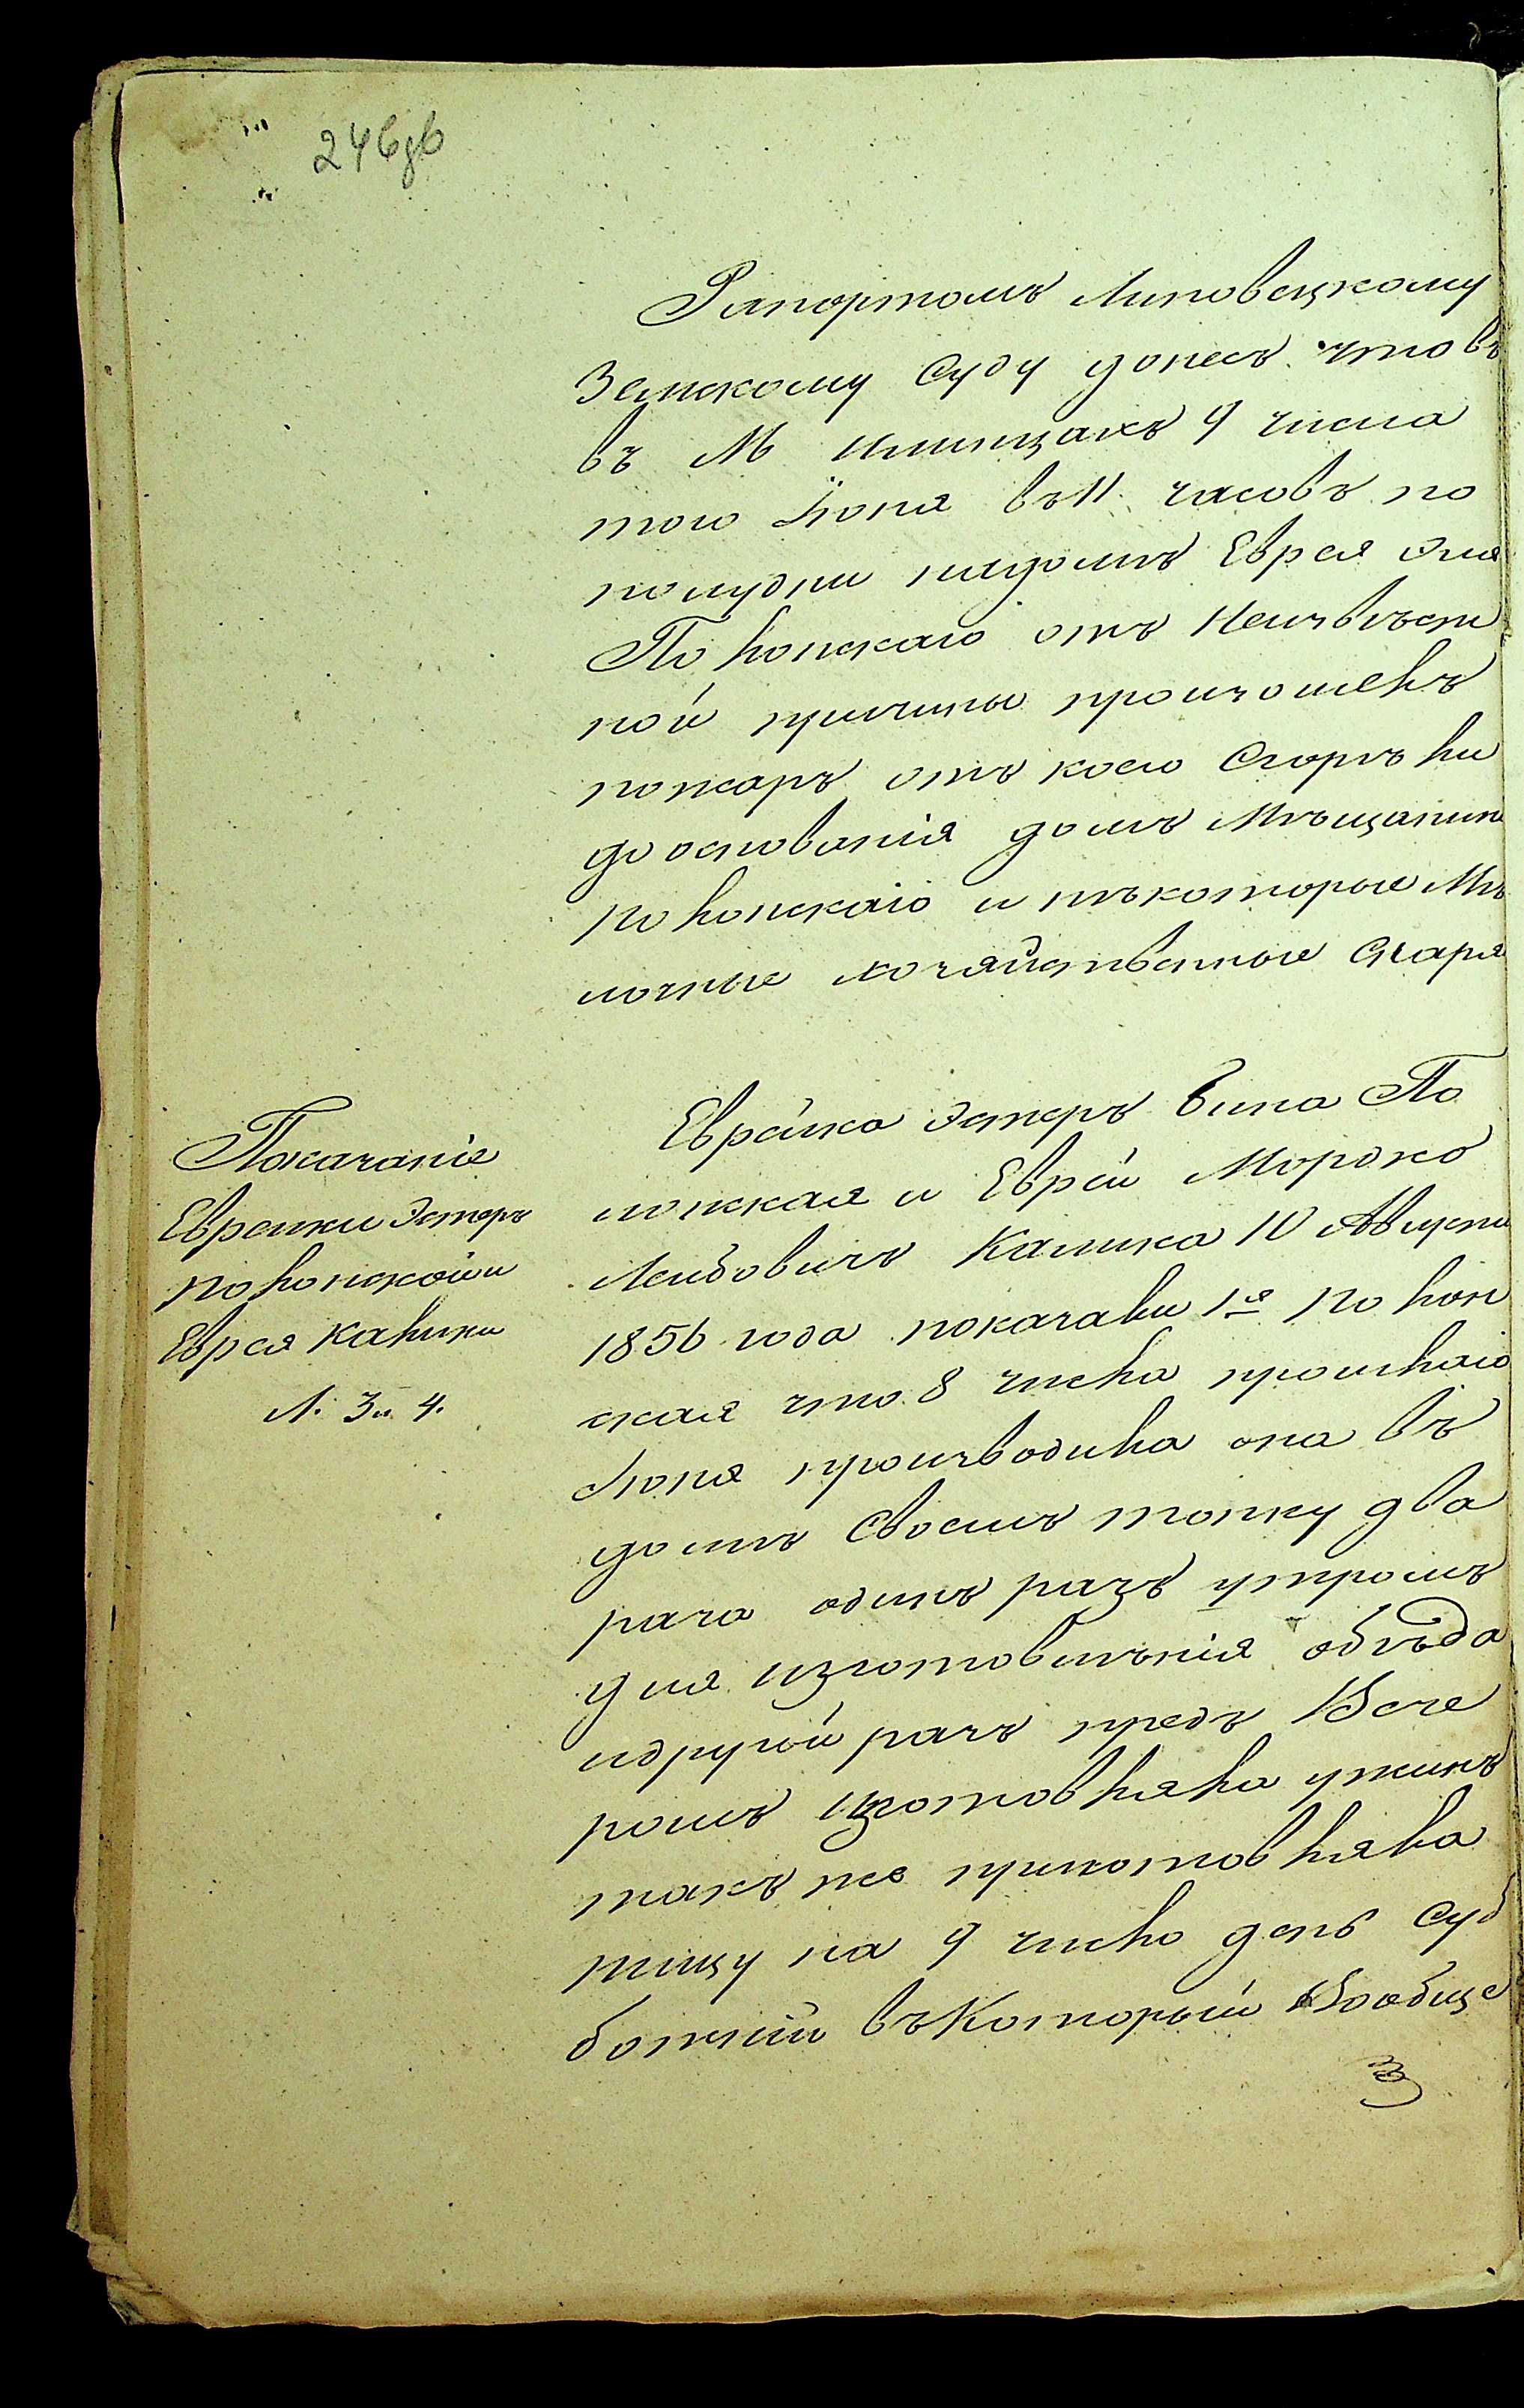 246 дв
Рапортомъ Липовецкому
Земскому Суду донесъ что въ
въ М Илинцахъ 9 числа
того Іюня въ 11 часовъ по
полудни надомъ Еврея
Полонскаго отъ Неизвѣст
ной причины произошелъ
пожаръ отъ коего Сгорѣли
до основанія домъ Мѣщанина
полонскаго и нѣкоторые Мѣ
лочные хозяйственные
Показаніе
Еврейки Эстеръ
полонской и
Еврея Калики
Л. 3 и 4.
Еврейка Эстеръ Бина По
лонская и Еврей Мордко
Лейбовичъ Калика 10 Августа
1856 года показали 1я полон
ская что 8 числа прошлаго
Іюня производила она въ
домѣ Своемъ топку два
раза одинъ разъ утромъ
для изготовленія обѣда
и другой разъ предъ Вече
ромъ изготовляла ужинъ
такъ же приготовляла
пищу на 9 число день Суб
ботній въ Который Вообще